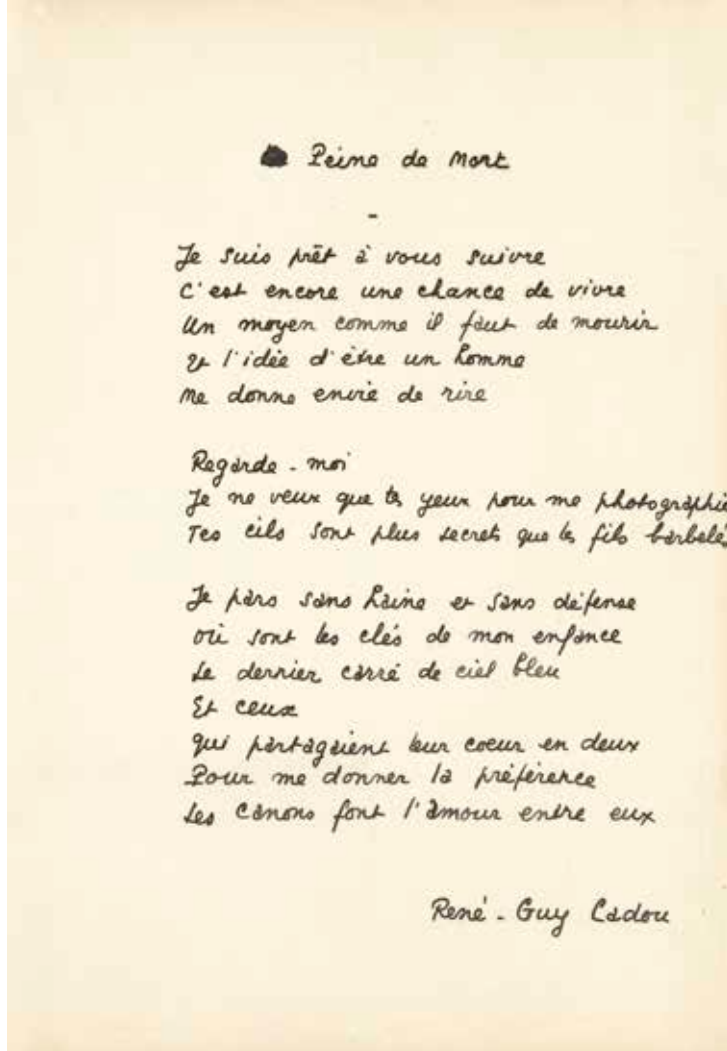 Peine de Mort
-
Je suis prêt à vous suivre
C'est encore une chance de vivre
Un moyen comme il faut de mourir
Et l'idée d'être un homme
Me donne envie de rire
Regarde-moi
Je ne veux que tes yeux pour me photographie
Tes cils sont plus secrets que les fils barbelés
Je pars sans haine et sans défense
Où sont les clés de mon enfance
Le dernier carré de ciel bleu
Et ceux
qui partagaient leur coeur en deux
Pour me donner la préférence
Les canons font l'amour entre eux
René-Guy Cadou